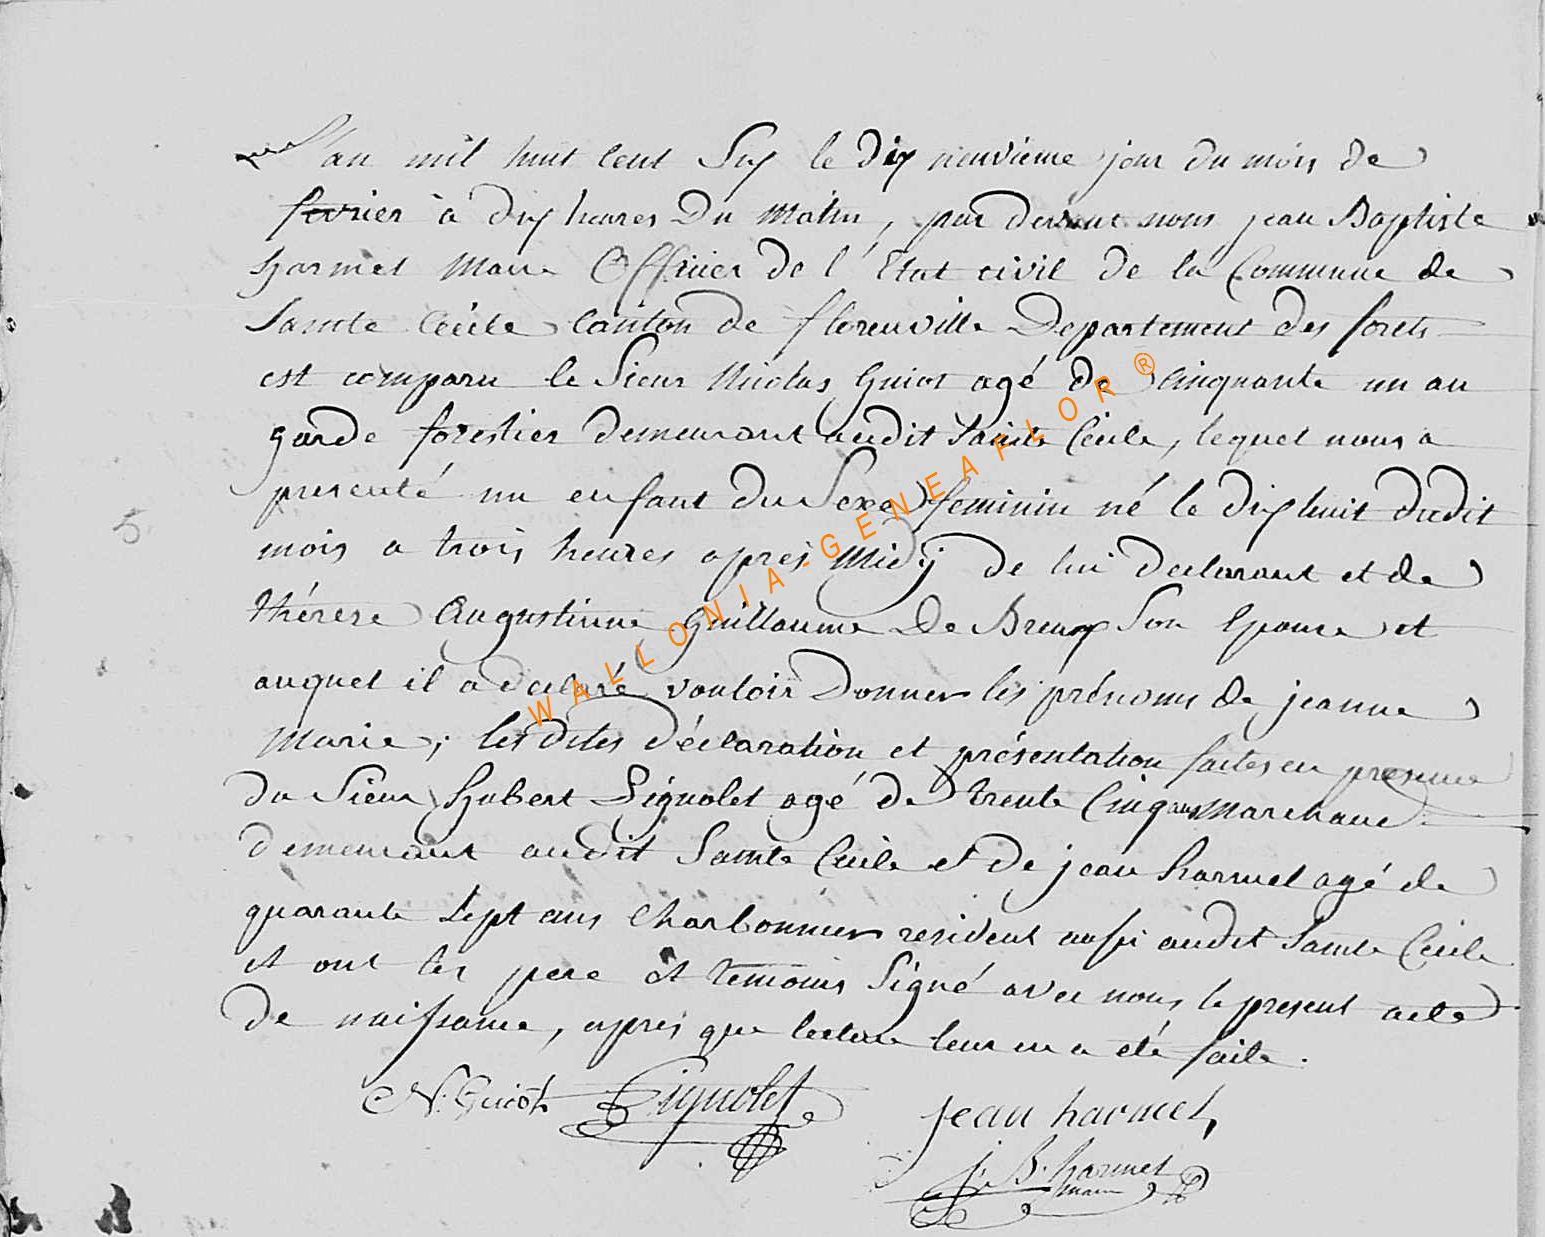 L'an mil huit cent Six le dix neuvieme jour du mois de
fevrier à dix heures du Matin, par devant nous jean Baptiste
harmel Maire Officier de l'Etat civil de la Commune de
Sainte Cécile Canton de florenville Departement des forets
est comparu le Sieur Nicolas Guiot agé de Cinquante un an
garde forestier demeurant audit Sainte Cecile, lequel nous a
presenté un enfant du Sexe feminin né le dix huit dudit
mois a trois heures après Midÿ de lui declarant et de
thérèse Augustinne Guillaume De Breux Son Epouse et
auquel il a declaré vouloir Donner les prénoms de jeanne
Marie; les dites déclaration et présentation faites en presence
du Sieur hubert Pignolet agé de trente Cinq ans Marchand
demeurant audit Sainte Cecile et de jean harmel agé de
quarante Sept ans Charbonnier resident aussi audit Sainte Cecile
et ont les pere et temoins Signé avec nous le present acte
de naissance, après que lecture leur en a été faite.
N. Guiot Pignolet jean harmel,
j. B. harmel
maire
5
WALLONIA-GENEAFLOR ®